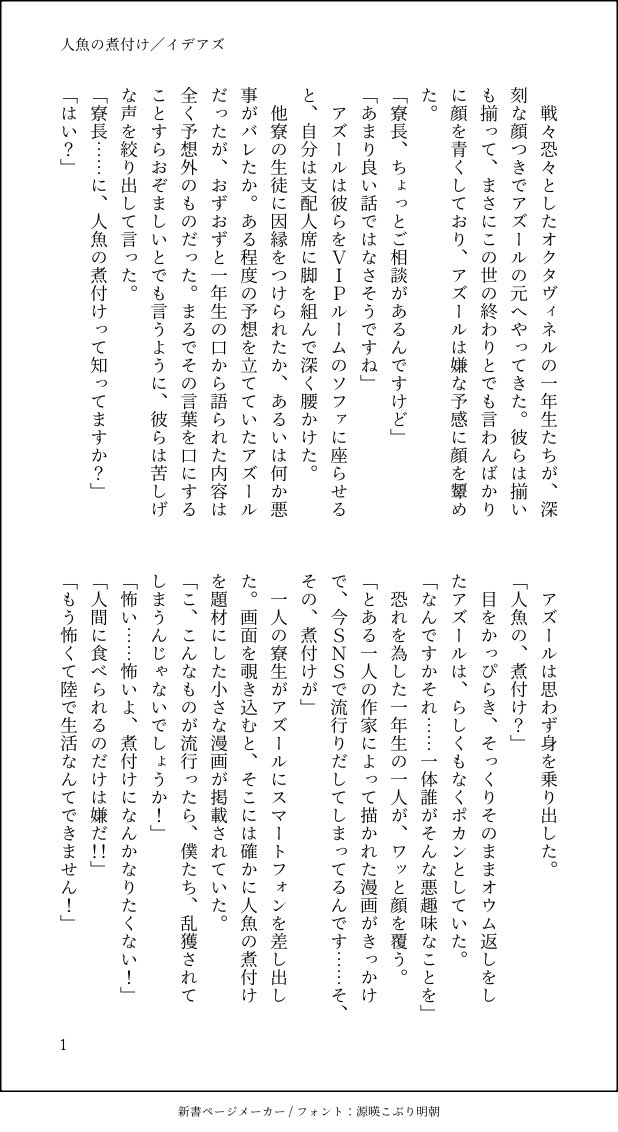 人魚の煮付け／イデアズ
　戦々恐々としたオクタヴィネルの一年生たちが、深
刻な顔つきでアズールの元へやってきた。彼らは揃い
も揃って、まさにこの世の終わりとでも言わんばかり
に顔を青くしており、アズールは嫌な予感に顔を顰め
た。
「寮長、ちょっとご相談があるんですけど」
「あまり良い話ではなさそうですね」
　アズールは彼らをＶＩＰルームのソファに座らせる
と、自分は支配人席に脚を組んで深く腰かけた。
　他寮の生徒に因縁をつけられたか、あるいは何か悪
事がバレたか。ある程度の予想を立てていたアズール
だったが、おずおずと一年生の口から語られた内容は
全く予想外のものだった。まるでその言葉を口にする
ことすらおぞましいとでも言うように、彼らは苦しげ
な声を絞り出して言った。
「寮長……に、人魚の煮付けって知ってますか？」
「はい？」
　アズールは思わず身を乗り出した。
「人魚の、煮付け？」
　目をかっぴらき、そっくりそのままオウム返しをし
たアズールは、らしくもなくポカンとしていた。
「なんですかそれ……一体誰がそんな悪趣味なことを」
　恐れを為した一年生の一人が、ワッと顔を覆う。
「とある一人の作家によって描かれた漫画がきっかけ
で、今ＳＮＳで流行りだしてしまってるんです……そ、
その、煮付けが」
　一人の寮生がアズールにスマートフォンを差し出し
た。画面を覗き込むと、そこには確かに人魚の煮付け
を題材にした小さな漫画が掲載されていた。
「こ、こんなものが流行ったら、僕たち、乱獲されて
しまうんじゃないでしょうか！」
「怖い……怖いよ、煮付けになんかなりたくない！」
「人間に食べられるのだけは嫌だ!!」
「もう怖くて陸で生活なんてできません！」
1
新書ページメーカー / フォント：源暎こぶり明朝